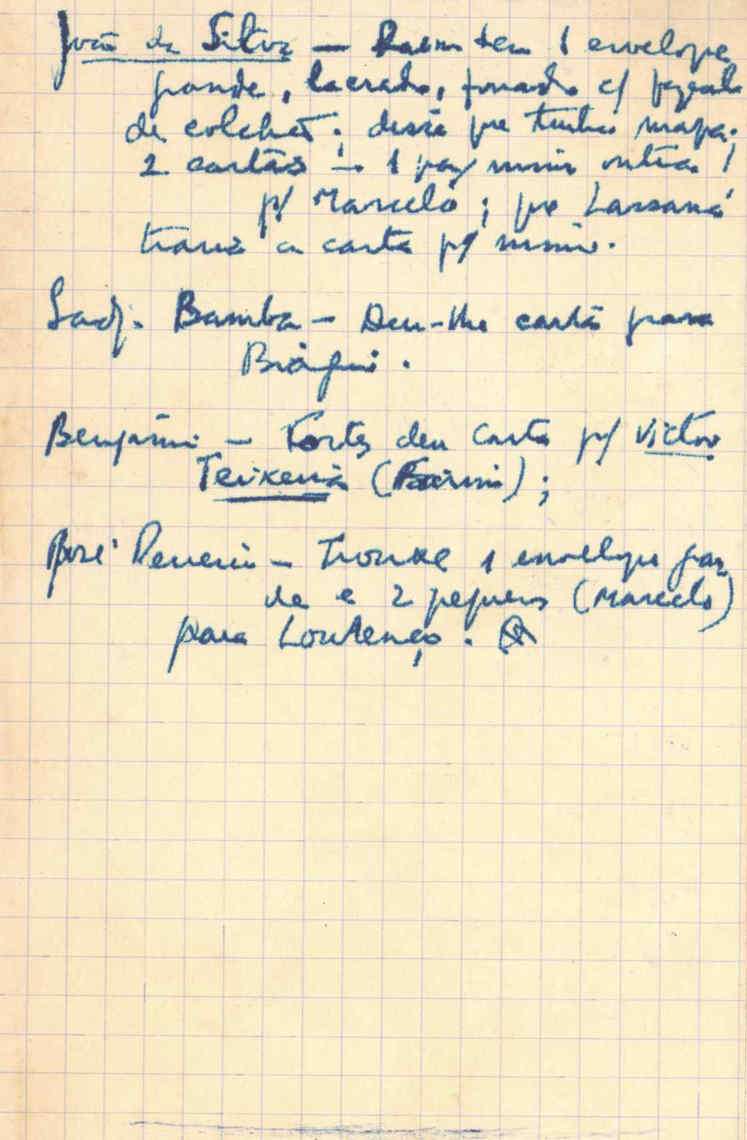 João da Silva — Rasm deu 1 envelope
grande, lacrado, forrado c/ fazenda
de colchão; dizia que tinha mapa;
2 cartas — 1 para mim outra
p/ Marcelo; que Lassana
trazia a carta p/ mim.
Sadj. Bamba — Deu-lhe carta para
Biágui.
Benjamim — Fortes deu carta p/ Victor
Teixeira ( );
José Pereira — Trouxe 1 envelope gran
de e 2 pequenos (Marcelo)
para Lourenço.